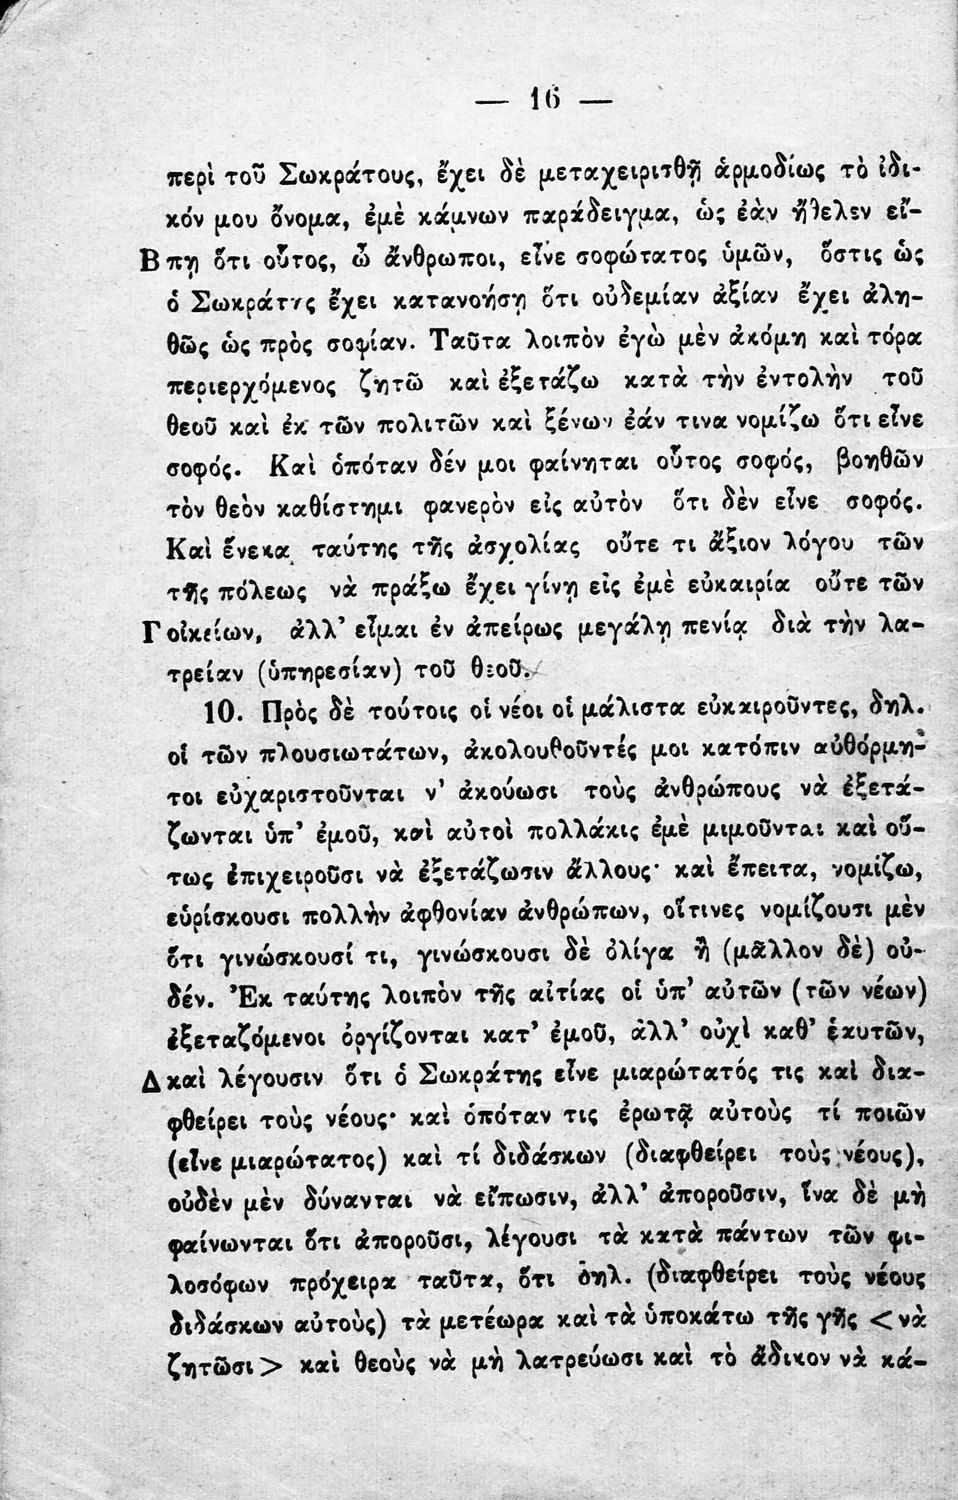 — 16 —
περὶ τοῦ Σωκράτους, ἔχει δὲ μεταχειρισθῇ ἁρμοδίως τὸ ἰδι-
κόν μου ὄνομα, ἐμὲ κάμνων παράδειγμα, ὡς ἐὰν ἤθελεν εἴ-
Β πῃ ὅτι οὗτος, ὦ ἄνθρωποι, εἶνε σοφώτατος ὑμῶν, ὅστις ὡς
ὁ Σωκράτης ἔχει κατανοήσῃ ὅτι οὐδεμίαν ἀξίαν ἔχει ἀλη-
θῶς ὡς πρὸς σοφίαν. Ταῦτα λοιπὸν ἐγὼ μὲν ἀκόμη καὶ τόρα
περιερχόμενος ζητῶ καὶ ἐξετάζω κατὰ τὴν ἐντολὴν τοῦ
θεοῦ καὶ ἐκ τῶν πολιτῶν καὶ ξένων ἐάν τινα νομίζω ὅτι εἶνε
σοφός. Καὶ ὁπόταν δέν μοι φαίνηται οὗτος σοφός, βοηθῶν
τὸν θεὸν καθίστημι φανερὸν εἰς αὐτὸν ὅτι δὲν εἶνε σοφός.
Καὶ ἕνεκα ταύτης τῆς ἀσχολίας οὔτε τι ἄξιον λόγου τῶν
τῆς πόλεως νὰ πράξω ἔχει γίνῃ εἰς ἐμὲ εὐκαιρία οὔτε τῶν
Γ οἰκείων, ἀλλ' εἶμαι ἐν ἀπείρως μεγάλῃ πενίᾳ διὰ τὴν λα-
τρείαν (ὑπηρεσίαν) τοῦ θεοῦ.
10. Πρὸς δὲ τούτοις οἱ νέοι οἱ μάλιστα εὐκαιροῦντες, δηλ.
οἱ τῶν πλουσιωτάτων, ἀκολουθοῦντές μοι κατόπιν αὐθόρμη-
τοι εὐχαριστοῦνται ν' ἀκούωσι τοὺς ἀνθρώπους νὰ ἐξετά-
ζωνται ὑπ' ἐμοῦ, καὶ αὐτοὶ πολλάκις ἐμὲ μιμοῦνται καὶ οὕ-
τως ἐπιχειροῦσι νὰ ἐξετάζωσιν ἄλλους· καὶ ἔπειτα, νομίζω,
εὑρίσκουσι πολλὴν ἀφθονίαν ἀνθρώπων, οἵτινες νομίζουσι μὲν
ὅτι γινώσκουσί τι, γινώσκουσι δὲ ὀλίγα ἢ (μᾶλλον δὲ) οὐ-
δέν. Ἐκ ταύτης λοιπὸν τῆς αἰτίας οἱ ὑπ' αὐτῶν (τῶν νέων)
ἐξεταζόμενοι ὀργίζονται κατ' ἐμοῦ, ἀλλ' οὐχὶ καθ' ἑαυτῶν,
Δ καὶ λέγουσιν ὅτι ὁ Σωκράτης εἶνε μιαρώτατός τις καὶ δια-
φθείρει τοὺς νέους· καὶ ὁπόταν τις ἐρωτᾷ αὐτοὺς τί ποιῶν
(εἶνε μιαρώτατος) καὶ τί διδάσκων (διαφθείρει τοὺς νέους),
οὐδὲν μὲν δύνανται νὰ εἴπωσιν, ἀλλ' ἀποροῦσιν, ἵνα δὲ μὴ
φαίνωνται ὅτι ἀποροῦσι, λέγουσι τὰ κατὰ πάντων τῶν φι-
λοσόφων πρόχειρα ταῦτα, ὅτι δηλ. (διαφθείρει τοὺς νέους
διδάσκων αὐτοὺς) τὰ μετέωρα καὶ τὰ ὑποκάτω τῆς γῆς < νὰ
ζητῶσι > καὶ θεοὺς νὰ μὴ λατρεύωσι καὶ τὸ ἄδικον νὰ κά-